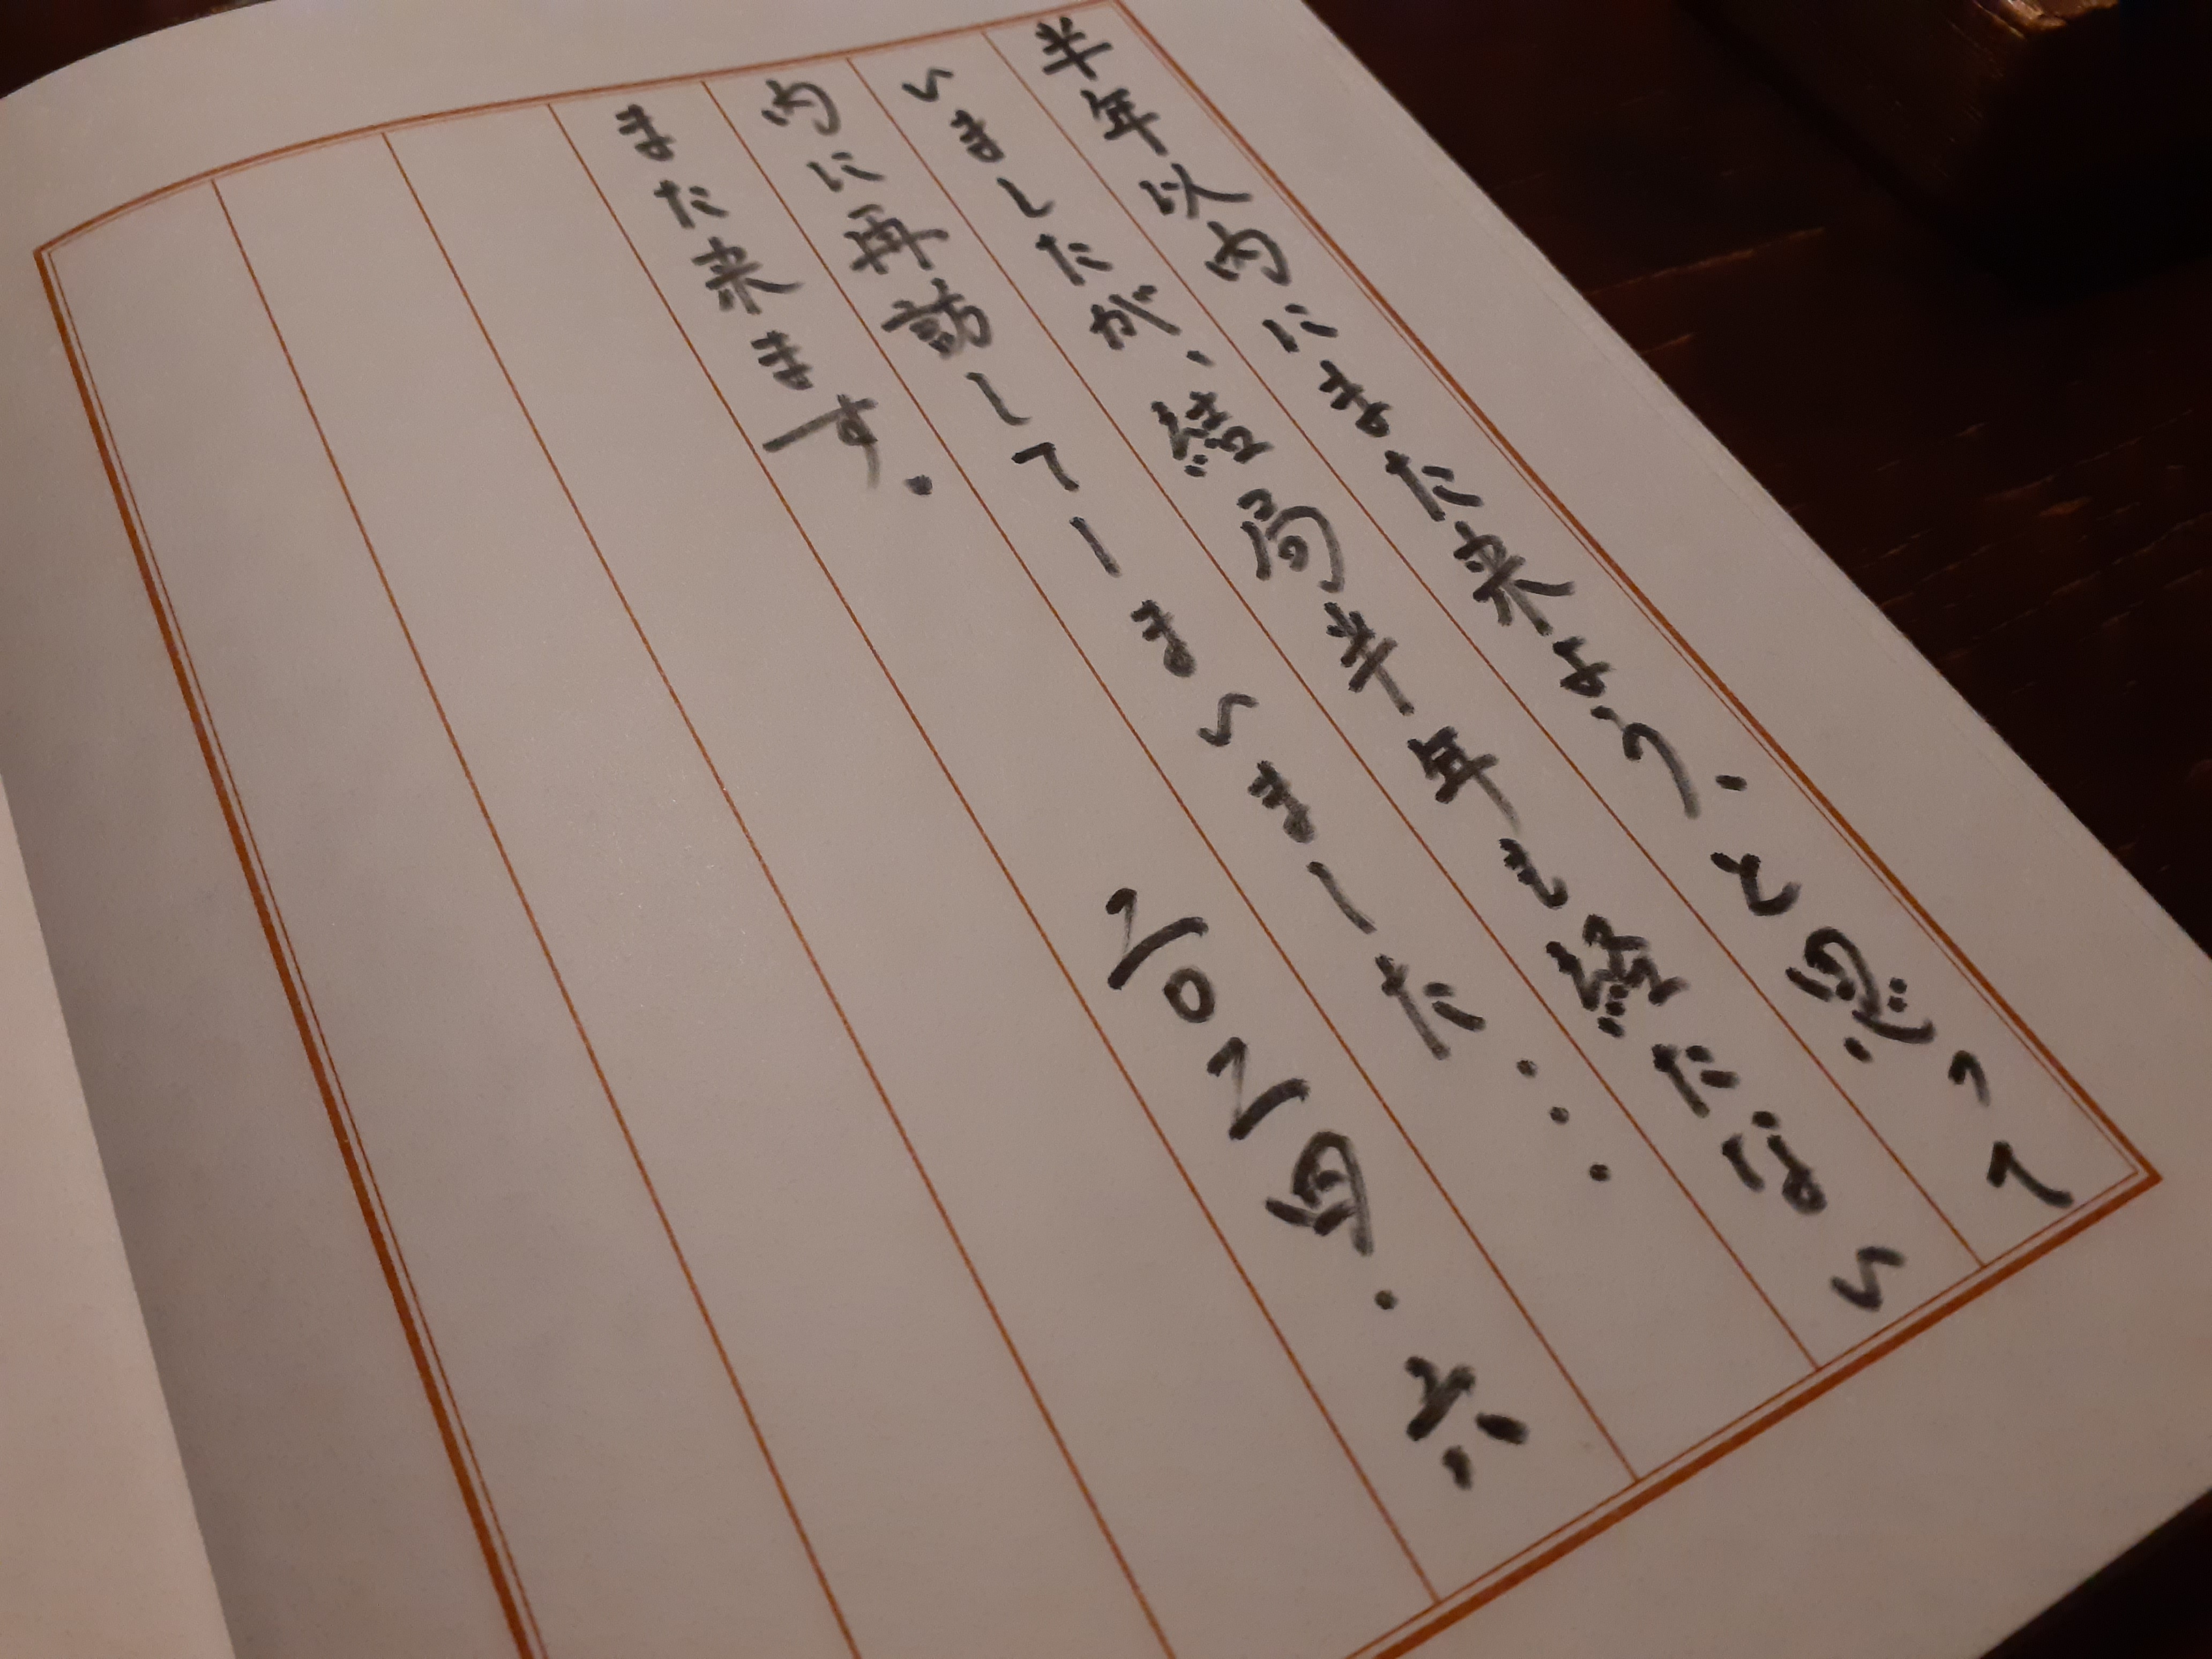 半年以内にまた来よう、と思って
いましたが、結局半年も経たない
内に再訪してしまいました...
また来ます。
二〇二四.六